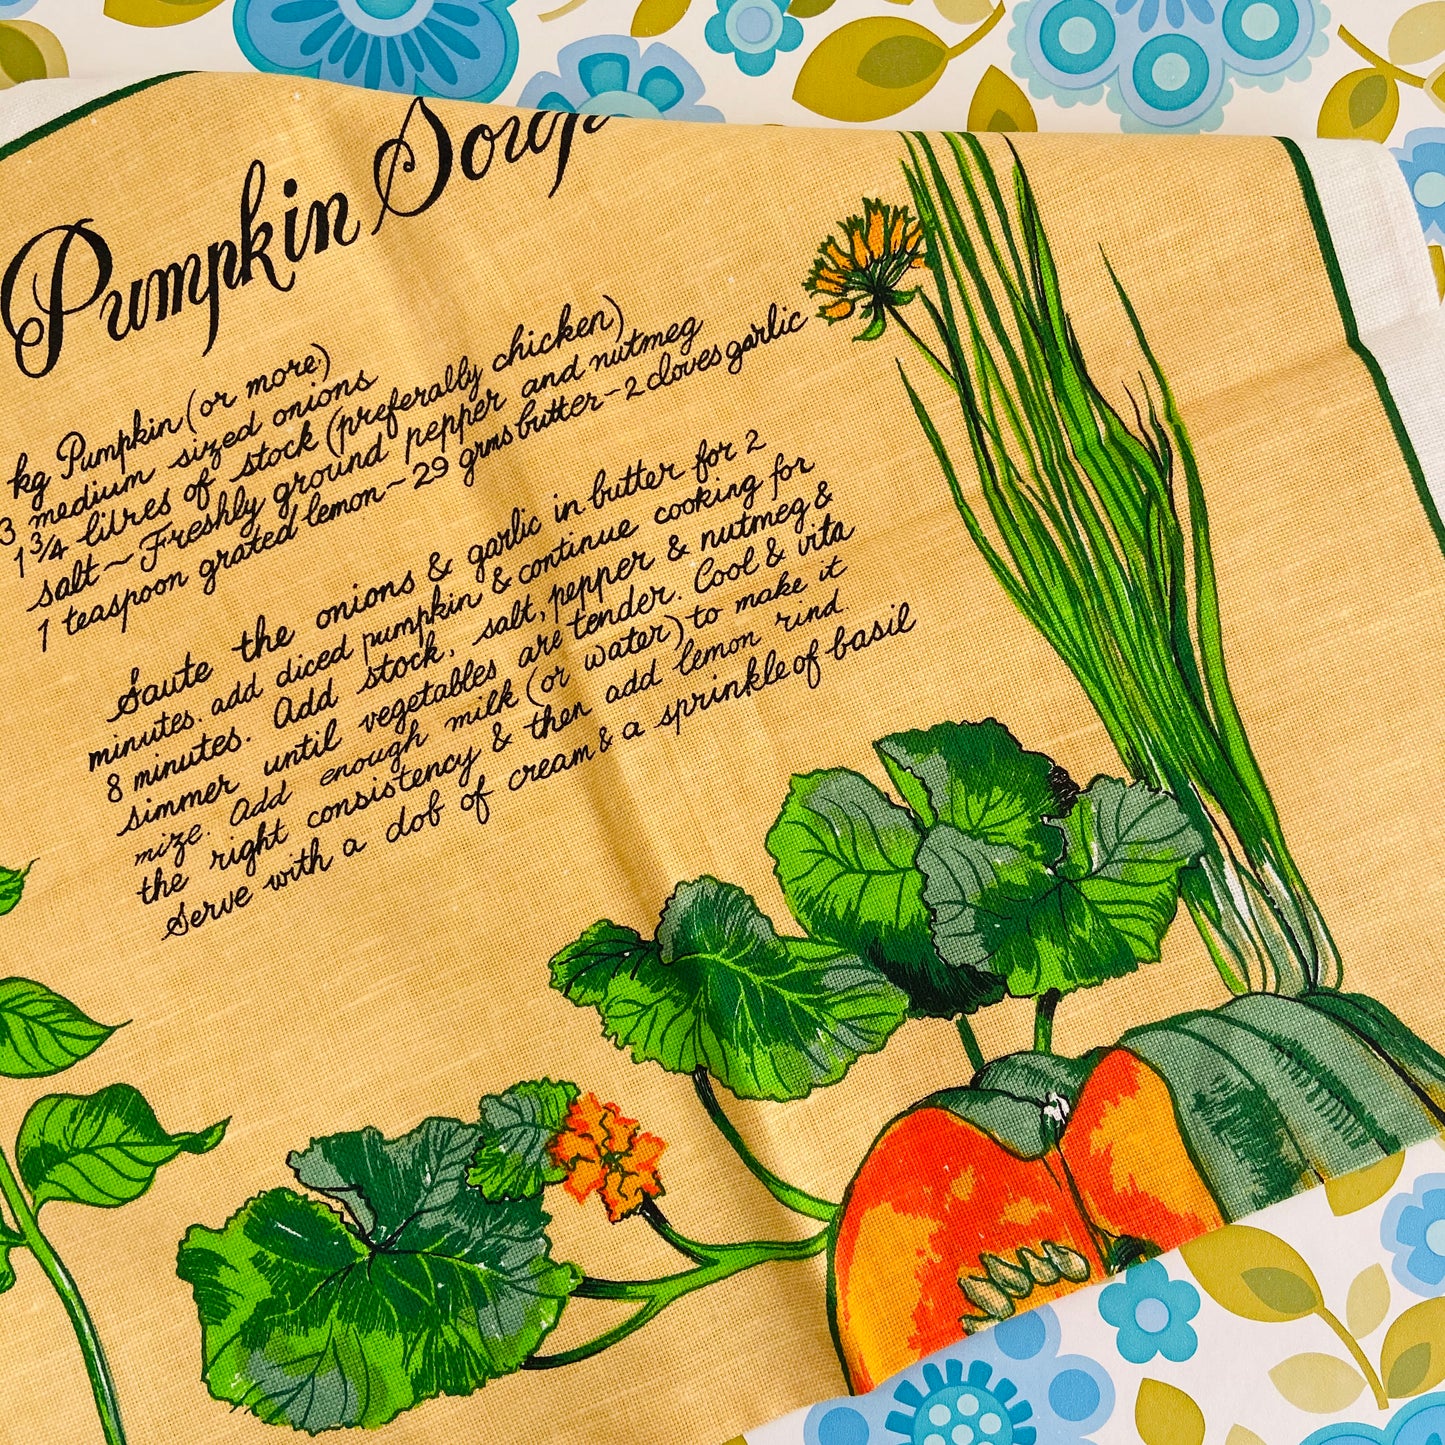 Pumpkin Soup
kg Pumpkin (or more.)
3 medium sized onions
1¾ litres of stock (preferally chicken)
salt ~ Freshly ground pepper and nutmeg
1 teaspoon grated lemon ~ 29 grms butter ~ 2 cloves garlic
Saute the onions & garlic in butter for 2
minutes. add diced pumpkin & continue cooking for
8 minutes. Add stock, salt, pepper & nutmeg &
simmer until vegetables are tender. Cool & vita
mize. Add enough milk (or water) to make it
the right consistency & then add lemon rind.
Serve with a dob of cream & a sprinkle of basil